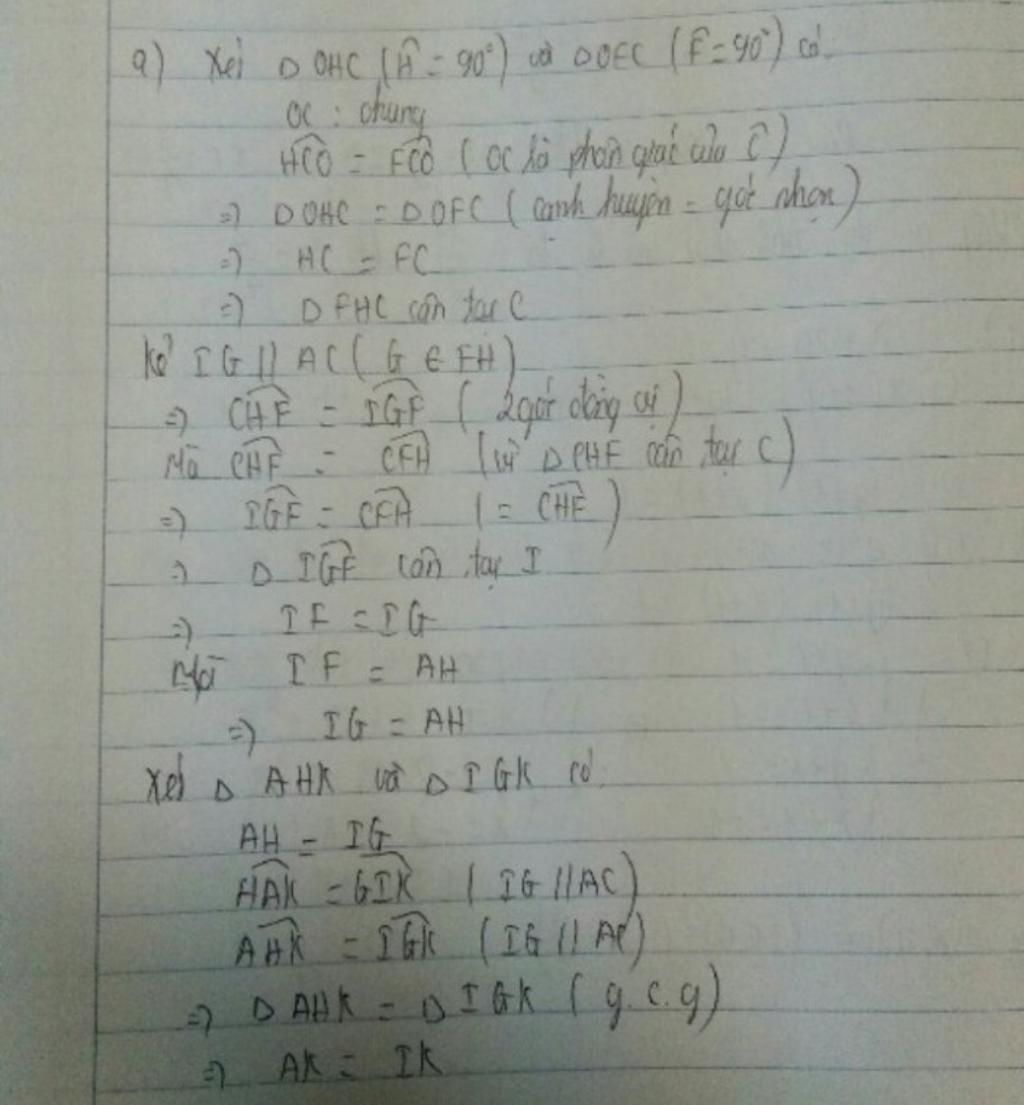 a) Xét Δ OHC (Ĥ = 90°) và Δ OFC (F̂ = 90°) có.
OC : chung
HCO = FCO ( OC là phân giác của Ĉ )
=> Δ OHC = Δ OFC ( cạnh huyền - góc nhọn )
=> HC = FC
=> Δ FHC cân tại C
Kẻ IG // AC ( G ∈ FH )
=> CHF = IGF ( 2 góc đồng vị )
Mà CHF = CFH ( vì Δ CHF cân tại C )
=> IGF = CFH ( = CHF )
=> Δ IGF cân tại I
=> IF = IG
Mà IF = AH
=> IG = AH
Xét Δ AHK và Δ IGK có.
AH = IG
HAK = GIK ( IG // AC )
AHK = IGK ( IG // AC )
=> Δ AHK = Δ IGK ( g.c.g )
=> AK = IK